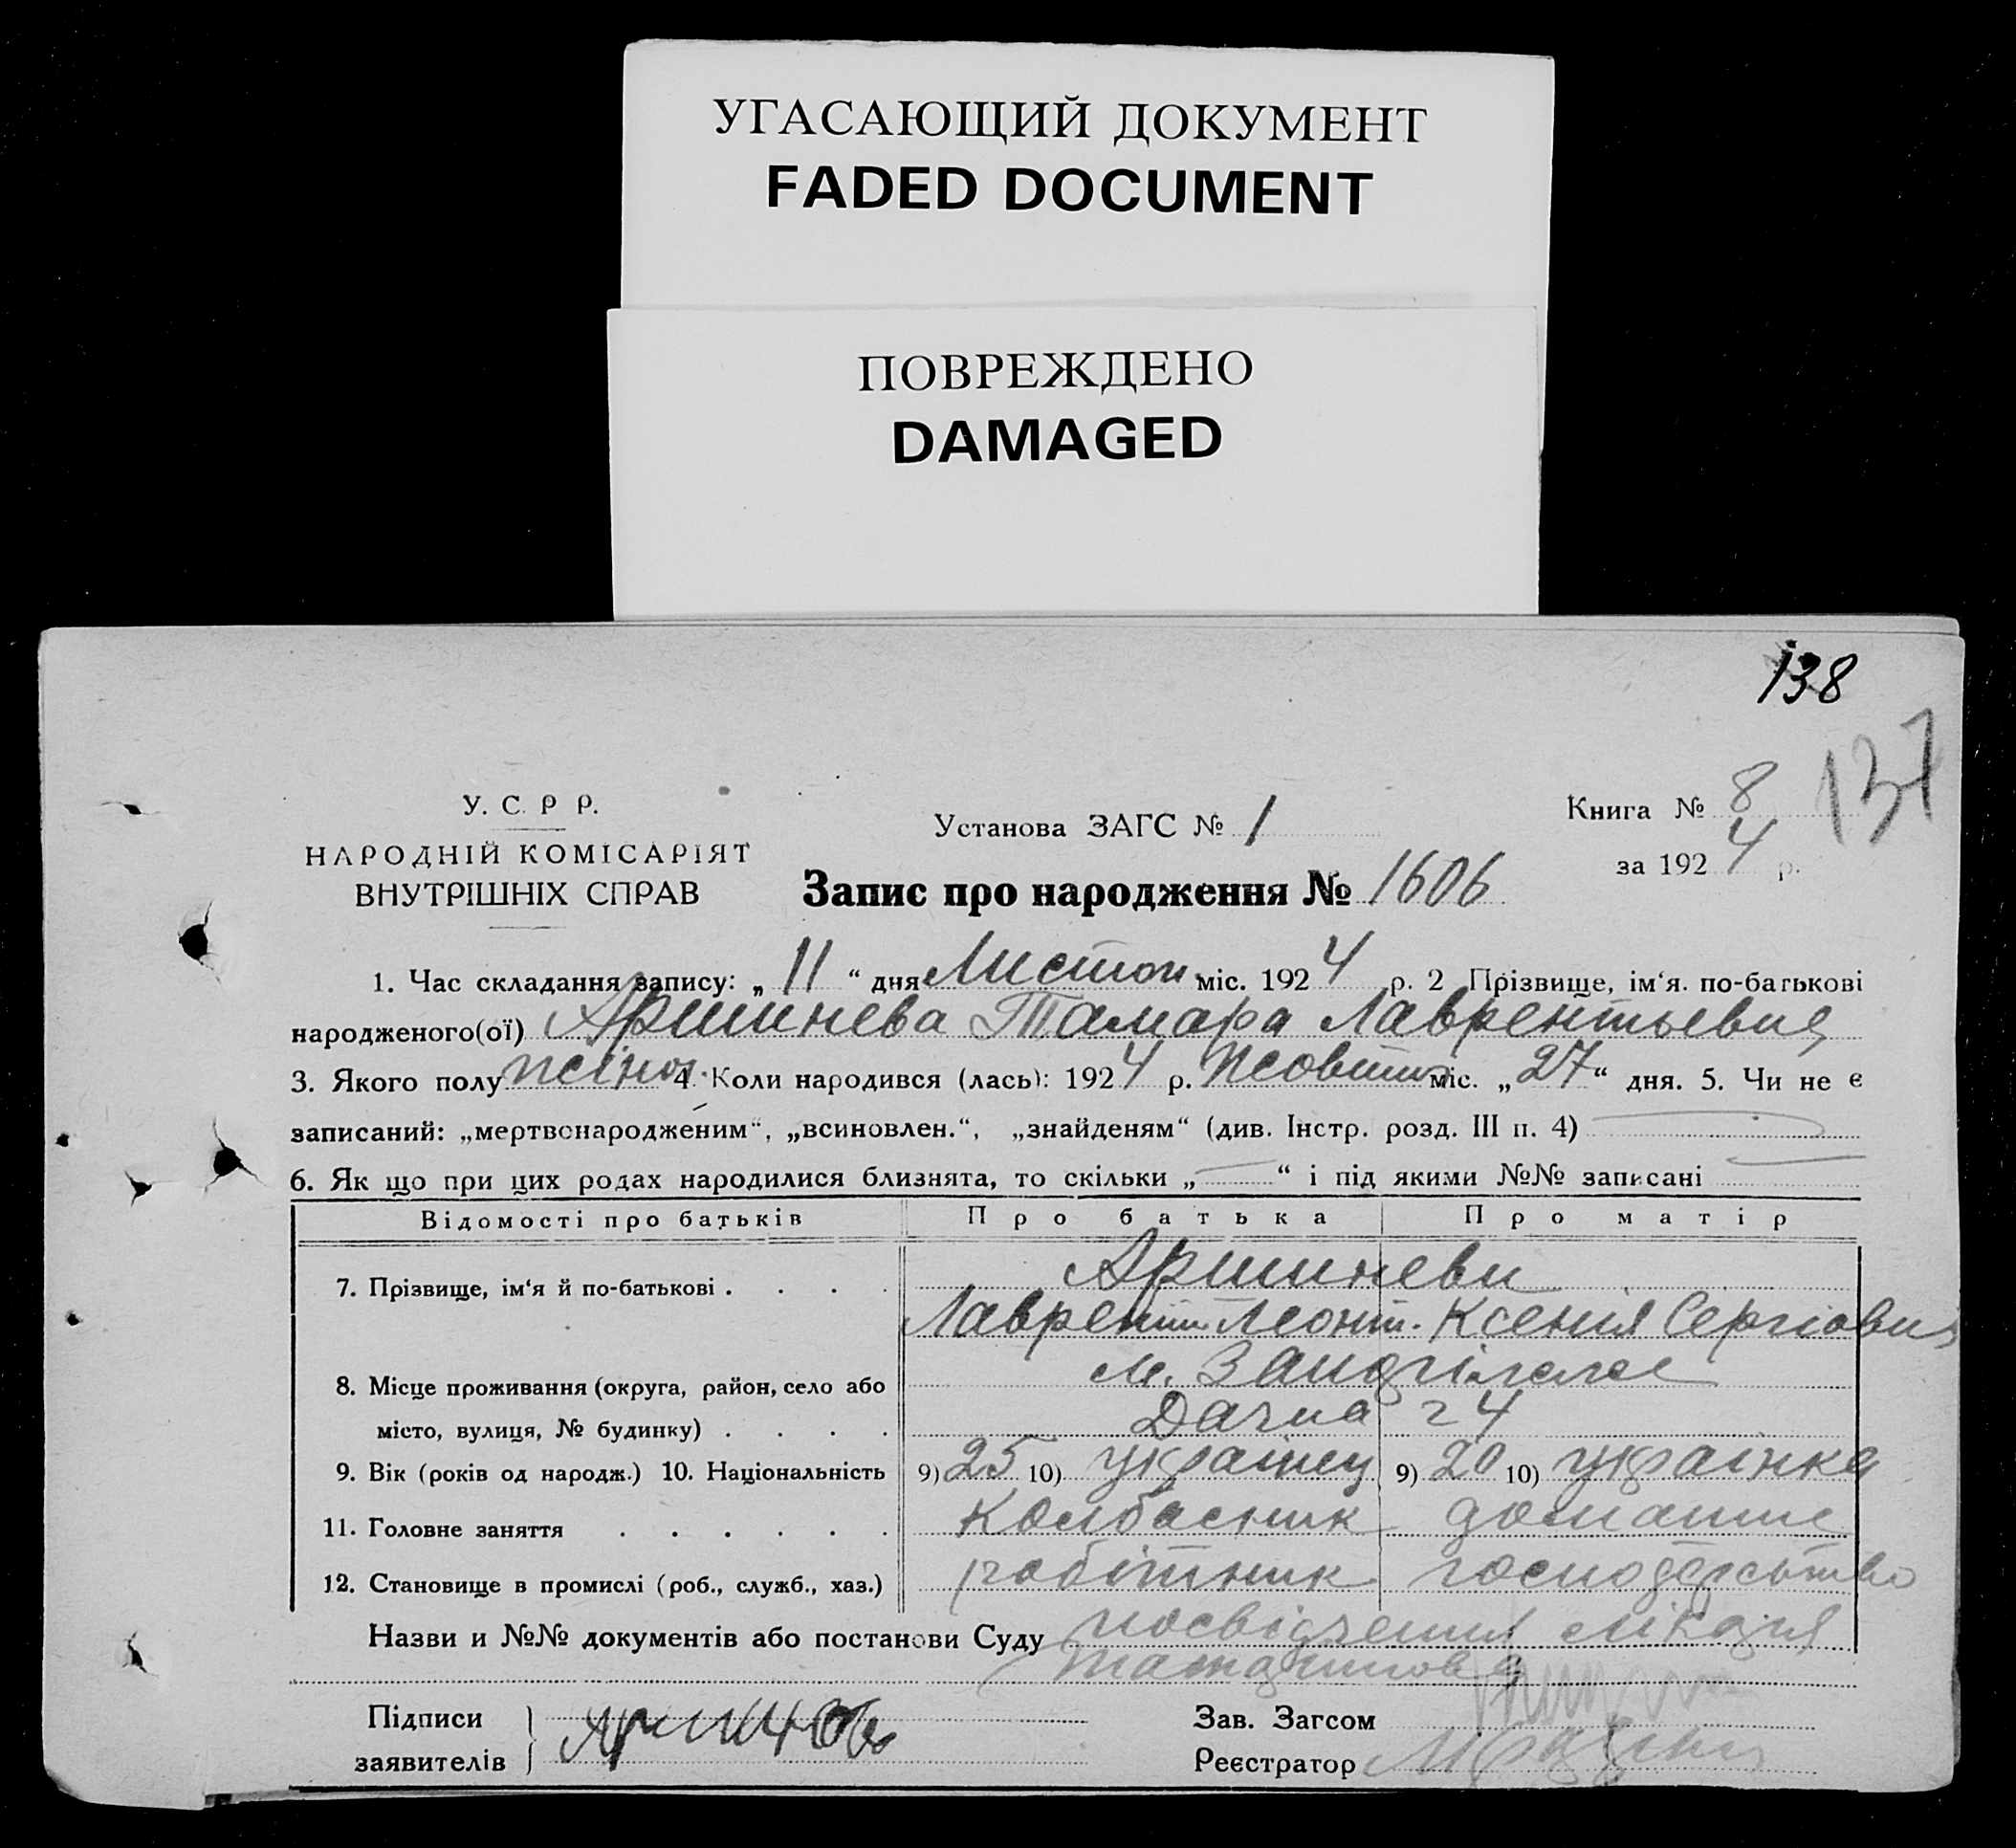 УГАСАЮЩИЙ ДОКУМЕНТ
FADED DOCUMENT
ПОВРЕЖДЕНО
DAMAGED
138
137
У. С. Р Р.
НАРОДНІЙ КОМІСАРІЯТ
ВНУТРІШНІХ СПРАВ
Установа ЗАГС № 1
Книга № 8
за 1924 р.
Запис про народження № 1606
1. Час складання запису: „11“ дня Листоп міс. 1924 р. 2 Прізвище, ім‘я. по-батькові
народженого(ої) Аршинева Тамара Лаврентьевна
3. Якого полу жіноч. 4. Коли народився (лась): 1924 р. Жовтня міс. „27“ дня. 5. Чи не є
записаний: „мертвонародженим“, „всиновлен.“, „знайденям“ (див. Інстр. розд. III п. 4)
6. Як що при цих родах народилися близнята, то скільки „ “ і під якими №№ записані
Відомості про батьків Про батька Про матір
7. Прізвище, ім‘я й по-батькові . . . . Аршиневи
Лаврентій Леонт. Ксенія Сергіовна
8. Місце проживання (округа, район, село або
місто, вулиця, № будинку) . . . . Дачна 24
9. Вік (років од народж.) 10. Національність 9) 25 10) украінец 9) 20 10) украінка
11. Головне заняття . . . . . . Колбасник домашнє
12. Становище в промислі (роб., служб., хаз.) робітник господарство
Назви и №№ документів або постанови Суду посвідчення лікаря
Підписи
заявителів
Зав. Загсом
Реєстратор